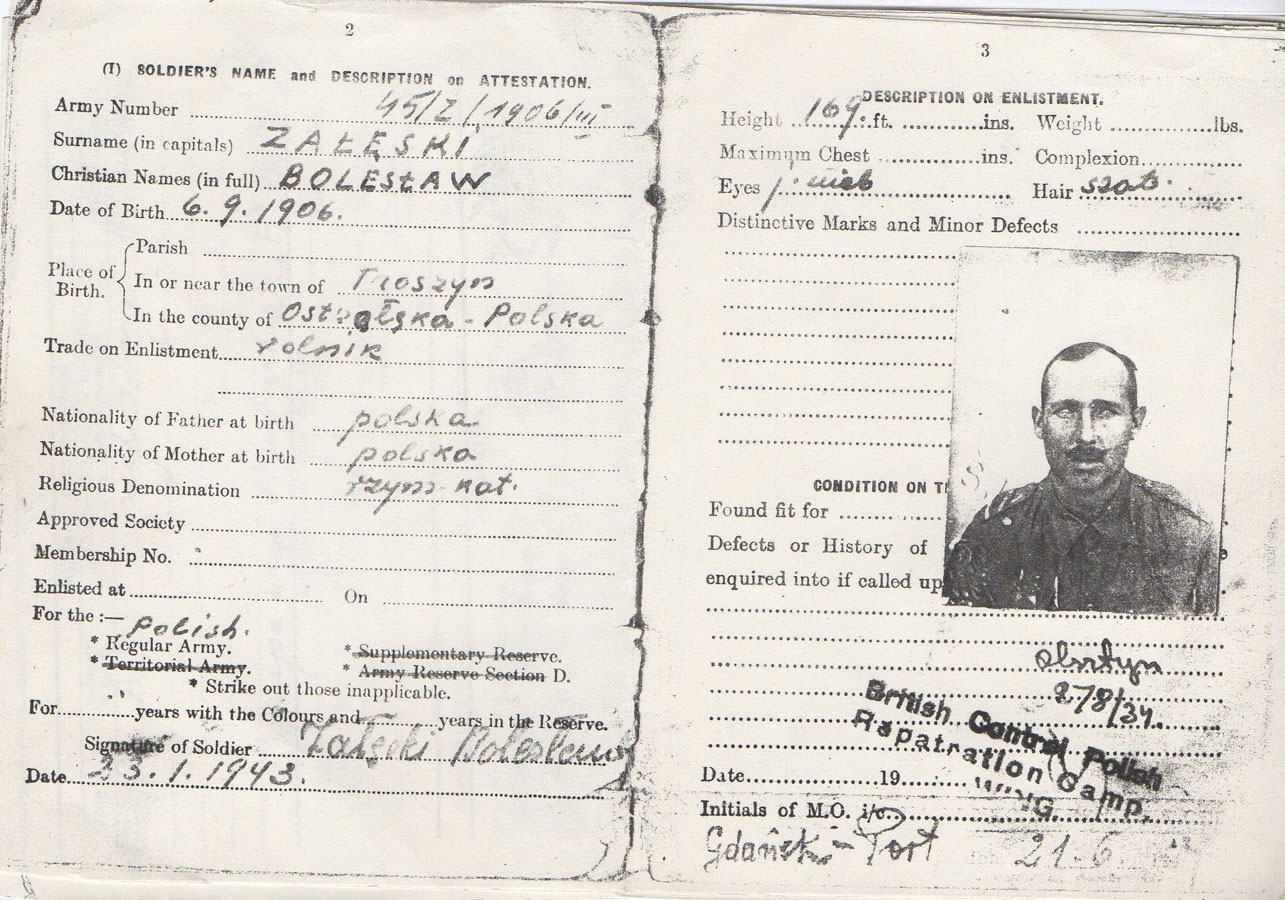 2
(I) SOLDIER'S NAME and DESCRIPTION on ATTESTATION.
Army Number 45/Z/1906/III
Surname (in capitals) ZAŁĘSKI
Christian Names (in full) BOLESŁAW
Date of Birth 6.9.1906.
Place of Birth.
Parish
In or near the town of Troszyn
In the county of Ostrołęka - Polska
Trade on Enlistment rolnik
Nationality of Father at birth polska
Nationality of Mother at birth polska
Religious Denomination rzym-kat.
Approved Society
Membership No.
Enlisted at On
For the :— Polish.
* Regular Army. * Supplementary Reserve.
* Territorial Army. * Army Reserve Section D.
* Strike out those inapplicable.
For years with the Colours and years in the Reserve.
Signature of Soldier Załęski Bolesław
Date 23.1.1943.
3
DESCRIPTION ON ENLISTMENT.
Height 169 ft. ins. Weight lbs.
Maximum Chest ins. Complexion
Eyes j. nieb Hair szat.
Distinctive Marks and Minor Defects
CONDITION ON
Found fit for
Defects or History of
enquired into if called up
278/34.
British Control Polish
Repatration Camp.
Date 19
Initials of M.O. i/c
Gdańsk-Port 21.6